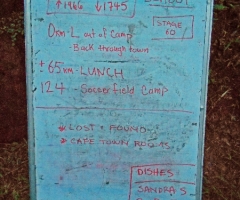 ↑1966 ↓1745
STAGE
60
0km - L out of Camp
- Back through town
+65km - LUNCH
124 - Soccerfield Camp
LOST + FOUND
CAPE TOWN ROOMS
DISHES
SANDRA S